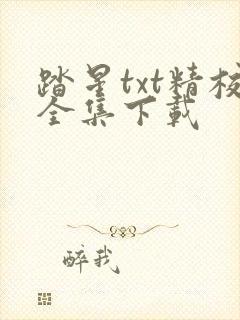 踏星txt精校
全集下载
醉我